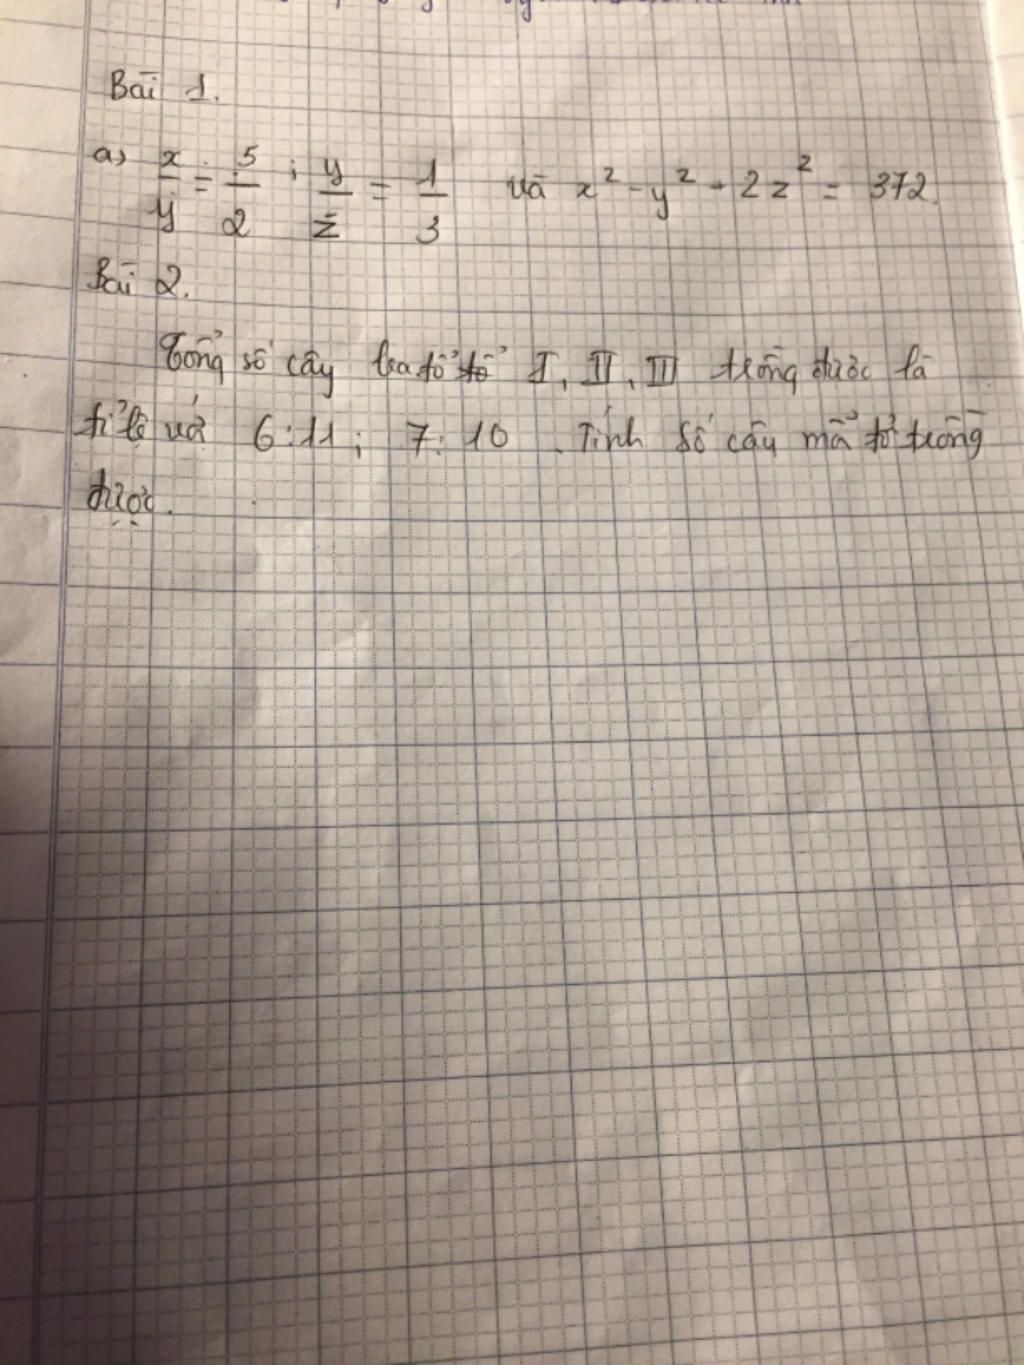 Bài 1.
a) x/y = 5/2 ; y/z = 1/3 và x² - y² + 2z² = 372.
Bài 2.
Tổng số cây ba tổ tổ I, II, III trồng được là
tỉ lệ với 6:11; 7:10. Tính số cây mỗi tổ trồng
được.